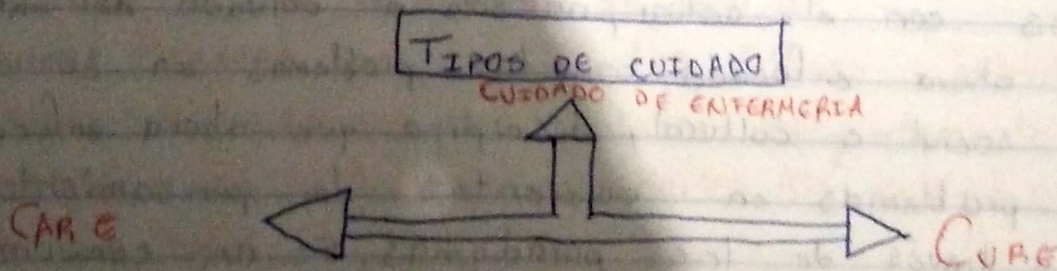 TIPOS DE CUIDADO
CUIDADO DE ENFERMERIA
CARE
CURE